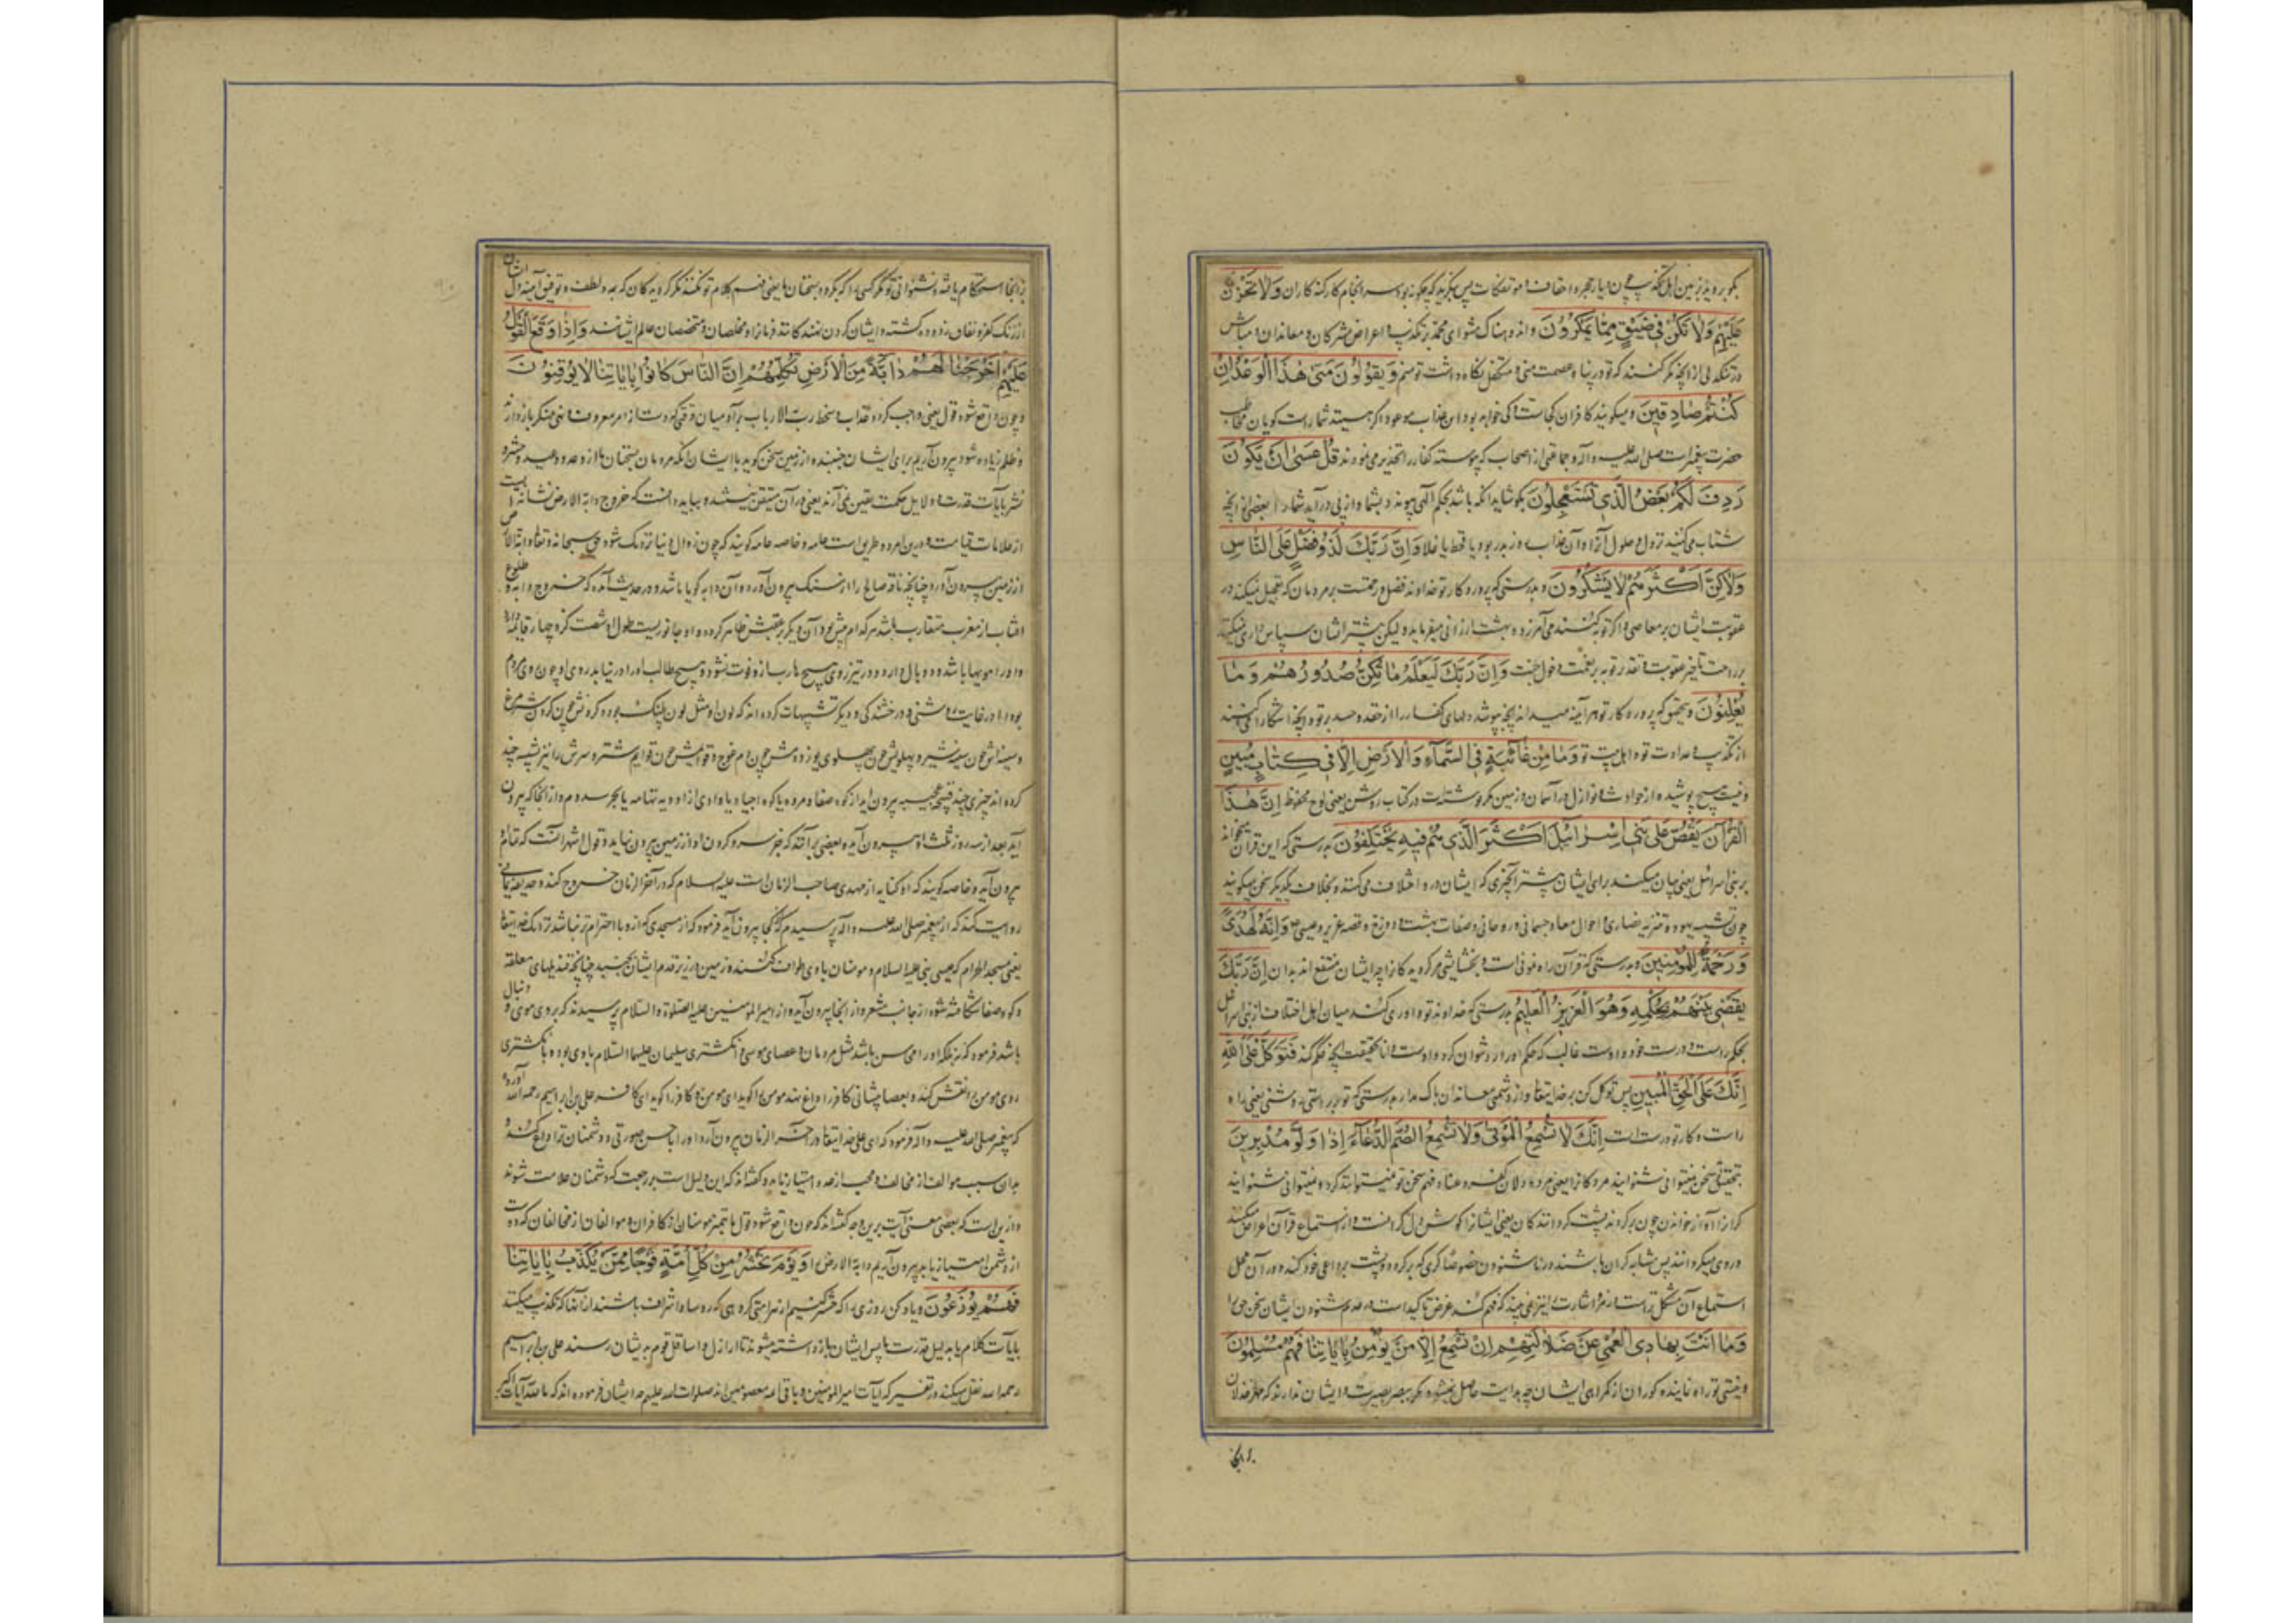 بگو بروید در زمین اهل تکذیب چون دیار حجر و احقاف و موتفکات پس بنگرید که چگونه بود سرانجام کار گنه کاران وَلَا تَحْزَنْ
عَلَيْهِمْ وَلَا تَكُنْ فِي ضَيْقٍ مِمَّا يَمْكُرُونَ و اندوهناک مشو ای محمد بر تکذیب و اعراض مشرکان و معاندان و مباش
در تنگدلی از آنچه مکر کنند که تو در پناه عصمت منی و متکفل نگاه داشت تو منم وَيَقُولُونَ مَتَى هَذَا الْوَعْدُ إِنْ
كُنْتُمْ صَادِقِينَ و میگویند کافران کجاست و کی خواهد بود این عذاب موعود اگر هستید شما راست گویان مخاطب
حضرت پیغمبر است صلی الله علیه و آله و جماعتی از اصحاب که پیوسته کفار را تحذیر می نمودند قُلْ عَسَى أَنْ يَكُونَ
رَدِفَ لَكُمْ بَعْضُ الَّذِي تَسْتَعْجِلُونَ بگو شاید آنکه باشد بحکم الهی پیوندد بشما و از پی درآید شما را بعضی از آنچه
شتاب می کنید نزول و حلول آنرا و آن عذاب روز بدر بود یا قحط یا غلا وَإِنَّ رَبَّكَ لَذُو فَضْلٍ عَلَى النَّاسِ
وَلَكِنَّ أَكْثَرَهُمْ لَا يَشْكُرُونَ و بدرستی که پروردگار تو خداوند فضل و رحمتست بر مردمان که تعجیل نمیکند در
عقوبت ایشان بر معاصی و اگر توبه کنند می آمرزد و بهشت ارزانی میفرماید و لیکن بیشتر ایشان سپاس داری نمیکنند
بر رحمت تاخیر عقوبت و تقدیر توبه بر نعمت دخول جنت وَإِنَّ رَبَّكَ لَيَعْلَمُ مَا تُكِنُّ صُدُورُهُمْ وَمَا
يُعْلِنُونَ و بتحقیق که پروردگار تو هرآینه میداند آنچه بپوشد دلهای کفار را از حقد و حسد بر تو و آنچه آشکارا میکنند
از تکذیب و عداوت تو و اهل بیت تو وَمَا مِنْ غَائِبَةٍ فِي السَّمَاءِ وَالْأَرْضِ إِلَّا فِي كِتَابٍ مُبِينٍ
و نیست هیچ پوشیده از حوادث و نوازل در آسمان و زمین مگر نوشته است در کتاب روشن یعنی لوح محفوظ إِنَّ هَذَا
الْقُرْآنَ يَقُصُّ عَلَى بَنِي إِسْرَائِيلَ أَكْثَرَ الَّذِي هُمْ فِيهِ يَخْتَلِفُونَ بدرستی که این قرآن میخواند
بر بنی اسرائیل یعنی بیان میکند برای ایشان بیشتر آنچیزی که ایشان در او اختلاف می کنند و بخلاف یکدیگر سخن میگویند
چون تشبیه یهود و تنزیه نصاری و احوال معاد جسمانی و روحانی و صفات بهشت و دوزخ و قصه عزیر و عیسی وَإِنَّهُ لَهُدًى
وَرَحْمَةٌ لِلْمُؤْمِنِينَ و بدرستی که قرآن راه نمونی است و بخشایشی مر گرویدگان را چه ایشان منتفع اند بدان إِنَّ رَبَّكَ
يَقْضِي بَيْنَهُمْ بِحُكْمِهِ وَهُوَ الْعَزِيزُ الْعَلِيمُ بدرستی که خداوند تو داوری کند میان اهل اختلاف از بنی اسرائیل
بحکم راست و درست خود و اوست غالب که حکم او را رد نتوان کرد و اوست دانا بحقیقت آنچه حکم کند فَتَوَكَّلْ عَلَى اللَّهِ
إِنَّكَ عَلَى الْحَقِّ الْمُبِينِ پس توکل کن بر خدایتعالی و از دشمنی معاندان باک مدار بدرستی که تو بر راستی روشنی یعنی راه
راست و کار تو درست است إِنَّكَ لَا تُسْمِعُ الْمَوْتَى وَلَا تُسْمِعُ الصُّمَّ الدُّعَاءَ إِذَا وَلَّوْا مُدْبِرِينَ
بتحقیق سخن نمیتوانی شنوانید مردگانرا یعنی مرده دلان کفر و عناد فهم سخن تو نمیتوانند کرد و نمیتوانی شنوانید
کران را آواز خواندن چون برگردند پشت گردانندگان یعنی ایشانرا گوش دل کر است و از استماع قرآن اعراض میکنند
و روی میگردانند پس مشابه کران باشند در ناشنودن خصوصا کری که برگردد و پشت بر داعی خود کند و در آن محل
استماع آن مشکل تر است از رمز و اشارت نیز نمی بیند که فهم کند غرض تاکید است در عدم شنودن ایشان سخن حق را
وَمَا أَنْتَ بِهَادِي الْعُمْيِ عَنْ ضَلَالَتِهِمْ إِنْ تُسْمِعُ إِلَّا مَنْ يُؤْمِنُ بِآيَاتِنَا فَهُمْ مُسْلِمُونَ
و نیستی تو راه نماینده کوران از گمراهی ایشان چه هدایت حاصل نمیشود مگر ببصر بصیرت و ایشان ندارند که
در انجا استحکام یافته و نشنوانی تو مگر کسی را که بگرود بسخنان ما یعنی فهم کلام تو نکنند مگر گرویدگان که به لطف و توفیق آینه دل ایشان
از زنگ کفر و نفاق زدوده گشته و ایشان گردن نهندگانند فرمانرا و مخلصان و متخصصان عالم ایشانند وَإِذَا وَقَعَ الْقَوْلُ
عَلَيْهِمْ أَخْرَجْنَا لَهُمْ دَابَّةً مِنَ الْأَرْضِ تُكَلِّمُهُمْ إِنَّ النَّاسَ كَانُوا بِآيَاتِنَا لَا يُوقِنُونَ
و چون واقع شود قول یعنی واجب گردد عذاب و سخط رب الارباب بر آدمیان وقتی که دست از امر معروف و نهی منکر بازدارند
و ظلم زیاده شود بیرون آریم برای ایشان جنبنده از زمین سخن گوید با ایشان آنکه مردمان بسخنان ما از وعد و وعید و حشر و
نشر یا بآیات قدرت و دلایل حکمت یقین نمی آرند یعنی در آن متیقن نیستند و بباید دانست که خروج دابة الارض نشانه ایست
از علامات قیامت و درین امر دو طریق است عامه و خاصه عامه گویند که چون زوال دنیا نزدیک شود حق سبحانه و تعالی دابة الارض
از زمین بیرون آورد چنانچه ناقه صالح را از سنگ بیرون آورد و آن دابه گویا باشد و در حدیث آمده که خروج دابه و طلوع
آفتاب از مغرب متقارب باشد هر کدام پیش بود آن دیگر بر عقبش ظاهر گردد و او جانوریست طول او شصت گز و چهار قایمه دارد
و او را مویها باشد و دو بال دارد و در تیزروی هیچ هارب از او فوت نشود و هیچ طالب او را درنیابد روی او چون روی مردم
بود اما در غایت روشنی و درخشندگی و دیگر تشبیهات کرده اند که لون او مثل لون پلنگ بود و گردنش چون گردن شترمرغ
و سینه اش چون سینه شیر و پهلویش چون پهلوی یوز و دمش چون دم غوچ و قوایمش چون قوایم شتر و سرش را نیز تشبیه چند
کرده اند بچیزی چند قصه عجیبه بیرون آید از کوه صفا و مروه یا کوه اجیاد یا وادی از اودیه تهامه یا بحر سدوم و از آنجا که بیرون
آید بعد از سه روز ثلث او بیرون آید و بعضی برآنند که جز سر و گردن او از زمین بیرون نیاید و قول اشهر آنست که تمام
بیرون آید و خاصه گویند که او کنایه از مهدی صاحب الزمان است علیه السلام که در آخر الزمان خروج کند و حذیفه یمانی
روایت کند که از پیغمبر صلی الله علیه و آله پرسیدم که از کجا بیرون آید فرمود که از مسجدی که از او با احترام تر نباشد نزدیک خدایتعالی
یعنی مسجد الحرام که عیسی نبی علیه السلام و مومنان با وی طواف کنند و زمین در زیر قدم ایشان بجنبد چنانچه قندیلهای معلقه
و کوه صفا شکافته شود از جانب مشعر و از آنجا بیرون آید و از امیر المومنین علیه الصلوة و السلام پرسیدند که بر وی موی و دنبال
باشد فرمود که نه بلکه او را محاسن باشد مثل مردمان و عصای موسی و انگشتری سلیمان علیهما السلام با وی بود و بانگشتری
روی مومن را نقش کند و بعصا پیشانی کافر را داغ نهد مومن را گوید ای مومن و کافر را گوید ای کافر علی بن ابراهیم رحمه الله آورده
که پیغمبر صلی الله علیه و آله فرمود که ای علی خدایتعالی در آخر الزمان بیرون آرد ترا باحسن صورتی و دشمنان ترا داغ کند
بدان سبب موالف از مخالف و محب از عدو امتیاز یابد و گفته اند که این دلیل است بر رجعت که دشمنان علامت شوند
و ازین است که بعضی معنی آیت برین وجه گفته اند که چون واقع شود قول ما بتمیز مومنان از کافران و موالفان از مخالفان که دوست
از دشمن امتیاز یابد بیرون آریم دابة الارض را وَيَوْمَ نَحْشُرُ مِنْ كُلِّ أُمَّةٍ فَوْجًا مِمَّنْ يُكَذِّبُ بِآيَاتِنَا
فَهُمْ يُوزَعُونَ و یاد کن روزی را که حشر کنیم از هر امتی گروهی که روساء و اشراف باشند از آنها که تکذیب میکنند
بآیات کلام ما به دلیل قدرت ما پس ایشان بازداشته میشوند تا اراذل و اسافل قوم به ایشان رسند علی بن ابراهیم
رحمه الله نقل میکند در تفسیر که آیات امیر المومنین و باقی ائمه معصومین اند صلوات الله علیهم چه ایشان فرموده اند که ما لله آیات اکبر
در انجا